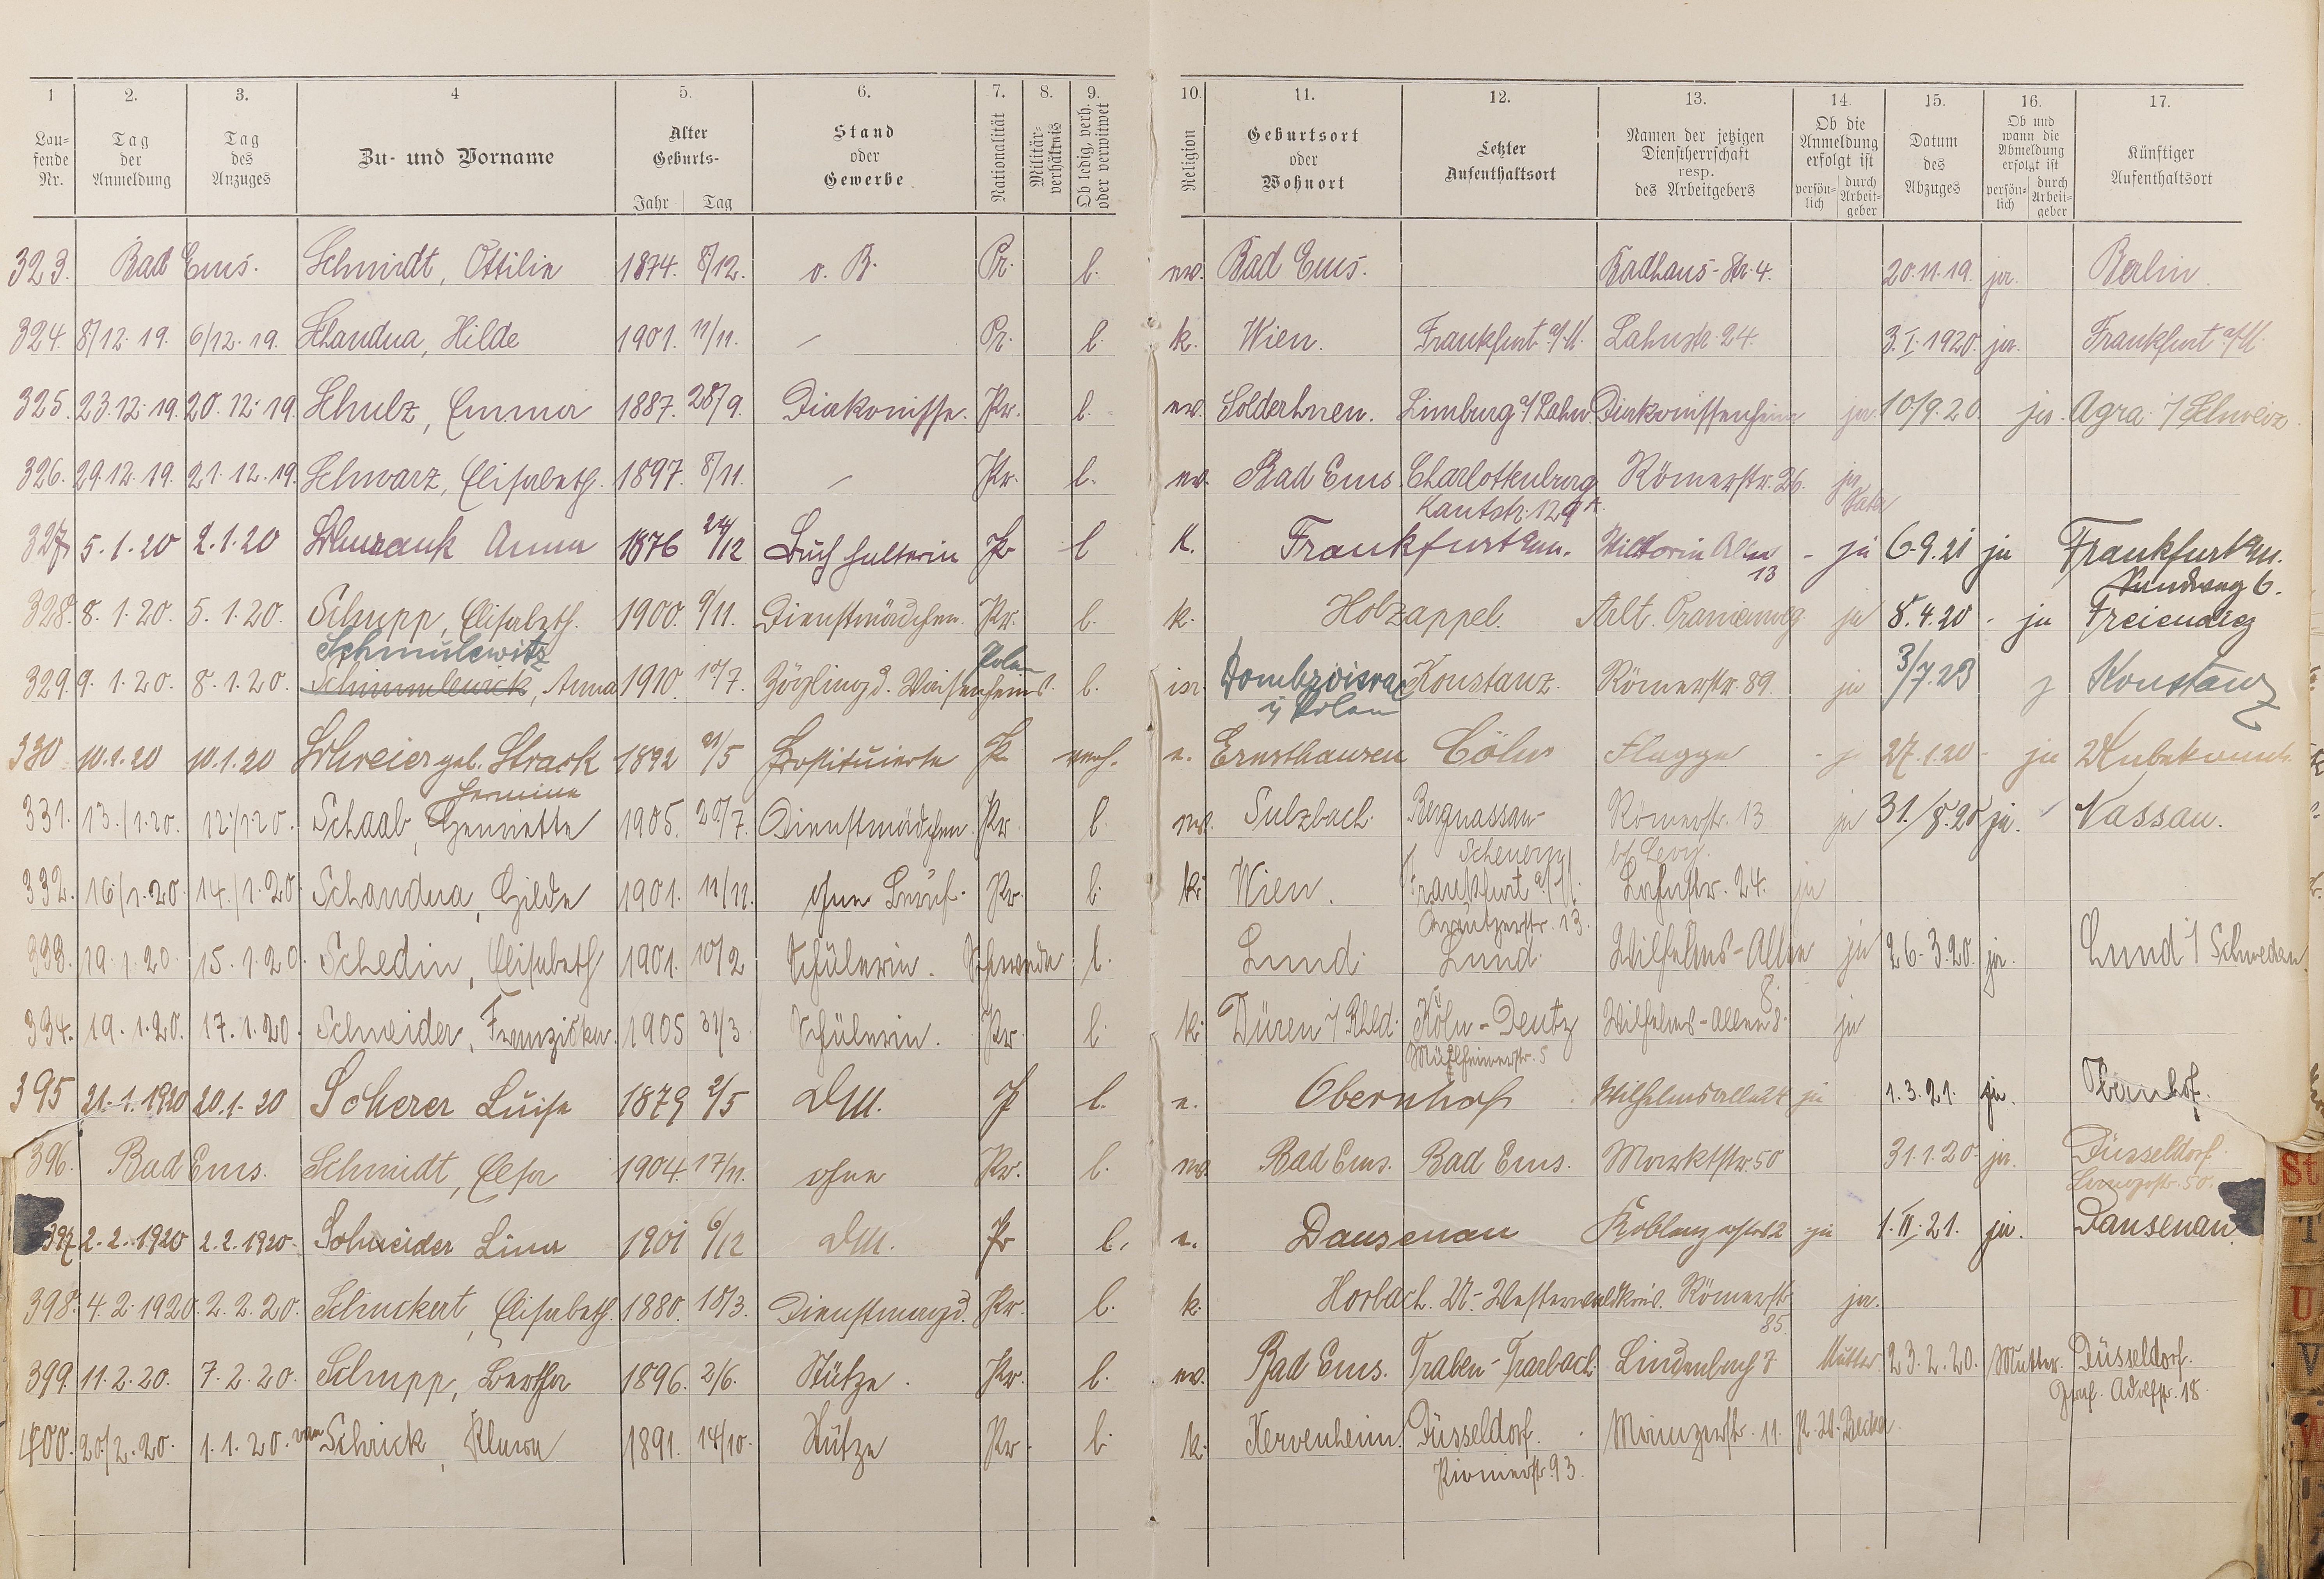 1 2. 3. 4 5. 6. 7. 8. 9. 10. 11. 12. 13. 14. 15. 16. 17.
Laufende Nr. Tag der Anmeldung Tag des Anzuges Zu- und Vorname Alter Geburts- Jahr Tag Stand oder Gewerbe Nationalität Militärverhältnis Ob ledig, verh. oder verwitwet Religion Geburtsort oder Wohnort Letzter Aufenthaltsort Namen der jetzigen Dienstherrschaft resp. des Arbeitgebers Ob die Anmeldung erfolgt ist persönlich durch Arbeitgeber Datum des Abzuges Ob und wann die Abmeldung erfolgt ist persönlich durch Arbeitgeber Künftiger Aufenthaltsort
323. Bad Ems. Schmidt, Ottilie 1874. 8/12. o. B. Pr. l. ev. Bad Ems. Badhaus-Str. 4. 20.11.19. ja. Berlin.
324. 8/12. 19. 6/12. 19. Schandua, Hilde 1901. 11/11. – Pr. l. k. Wien. Frankfurt a/M. Lahnstr. 24. 3.I.1920. ja. Frankfurt a/M.
325. 23.12.19. 20.12.19. Schulz, Emma 1887. 28/9. Diakonisse. Pr. l. ev. Limburg a/Lahn. Diakonissenheim ja 10/9.20. ja. Agra i/Schweiz.
326. 29.12.19. 21.12.19. Schwarz, Elisabeth. 1897. 8/11. – Pr. l. ev. Bad Ems Charlottenburg Römerstr. 26. ja
Kantstr. 129 A. Vater
327 5.1.20 2.1.20 Anna 1876 24/12 Buchhalterin Pr l k. Frankfurt a/m. Viktoria Allee - ja 6.9.21 ja Frankfurt a/m.
13
328. 8.1.20. 5.1.20. Schupp, Elisabeth. 1900. 9/11. Dienstmädchen. Pr. l. k. Holzappel. Arlt. Oranienweg ja 8.4.20 - ja Freiendiez
Schmulewitz Polen
329. 9.1.20. 8.1.20. Schimmlewick, Anna 1910. 10/7. Zögling d. Waisenheims. l. isr. Konstanz. Römerstr. 89. ja 3/7.23 Konstanz
i/Polen
330 10.1.20 10.1.20 Schreier geb. Strack 1892 21/5 Prostituierte Pr verh. e. Ernsthausen Cöln Flagge - j 27.1.20 - ja Unbekannt.
Hermine
331. 13./1.20. 12./1.20. Schaab, Henriette 1905. 20/7. Dienstmädchen. Pr l. ev. Sulzbach. Bergnassau- Römerstr. 13 ja 31./8.20 ja. Nassau.
Scheuern b/ Levy.
332. 16/1.20. 14./1.20. Schandua, Hilde 1901. 11/11. ohne Beruf. Pr. l. k. Wien. Frankfurt a/M. Lahnstr. 24. ja
333. 19.1.20. 15.1.20. Schedin, Elisabeth 1901. 10/2 Schülerin. Schwede l. Lund. Lund. Wilhelms-Allee ja 26.3.20. ja. Lund i/Schweden.
8.
334. 19.1.20. 17.1.20. Schneider, Franziska. 1905 31/3 Schülerin. Pr. l. k. Düren i/Rhld. Köln-Deutz Wilhelms-Allee 8. ja
Mülheimerstr. 5
395 21.1.1920 20.1.20 Scherer Luise 1879 2/5 DM. P l. e. Obernhof Wilhelmsallee ja 1.3.21. ja. Obernhof.
396. Bad Ems. Schmidt, Elsa 1904. 17/11. ohne Pr. l. ev. Bad Ems. Bad Ems. Marktstr. 50 31.1.20. ja. Düsseldorf.
397 2.2.1920 2.2.1920 Schneider Lina 1901 6/12 DM. Pr l. e. Dausenau Koblenzerstr. ja 1.II.21. ja. Dausenau.
398. 4.2.1920. 2.2.20. Schuckert, Elisabeth. 1880. 18/3. Dienstmagd. Pr. l. k. Horbach. U-Westerwaldkreis. Römerstr. ja.
85.
399. 11.2.20. 7.2.20. Schupp, Bertha 1896. 2/6. Stütze. Pr. l. ev. Bad Ems. Traben-Trarbach. Lindenbach 7 Mutter. 23.2.20. Mutter. Düsseldorf.
Graf. Adolfstr. 18.
400. 20/2.20. 1.1.20. van Schrick, 1891. 14/10. Stütze Pr. l. k. Kervenheim. Düsseldorf. Mainzerstr. 11. Becker.
Pionierstr. 93.